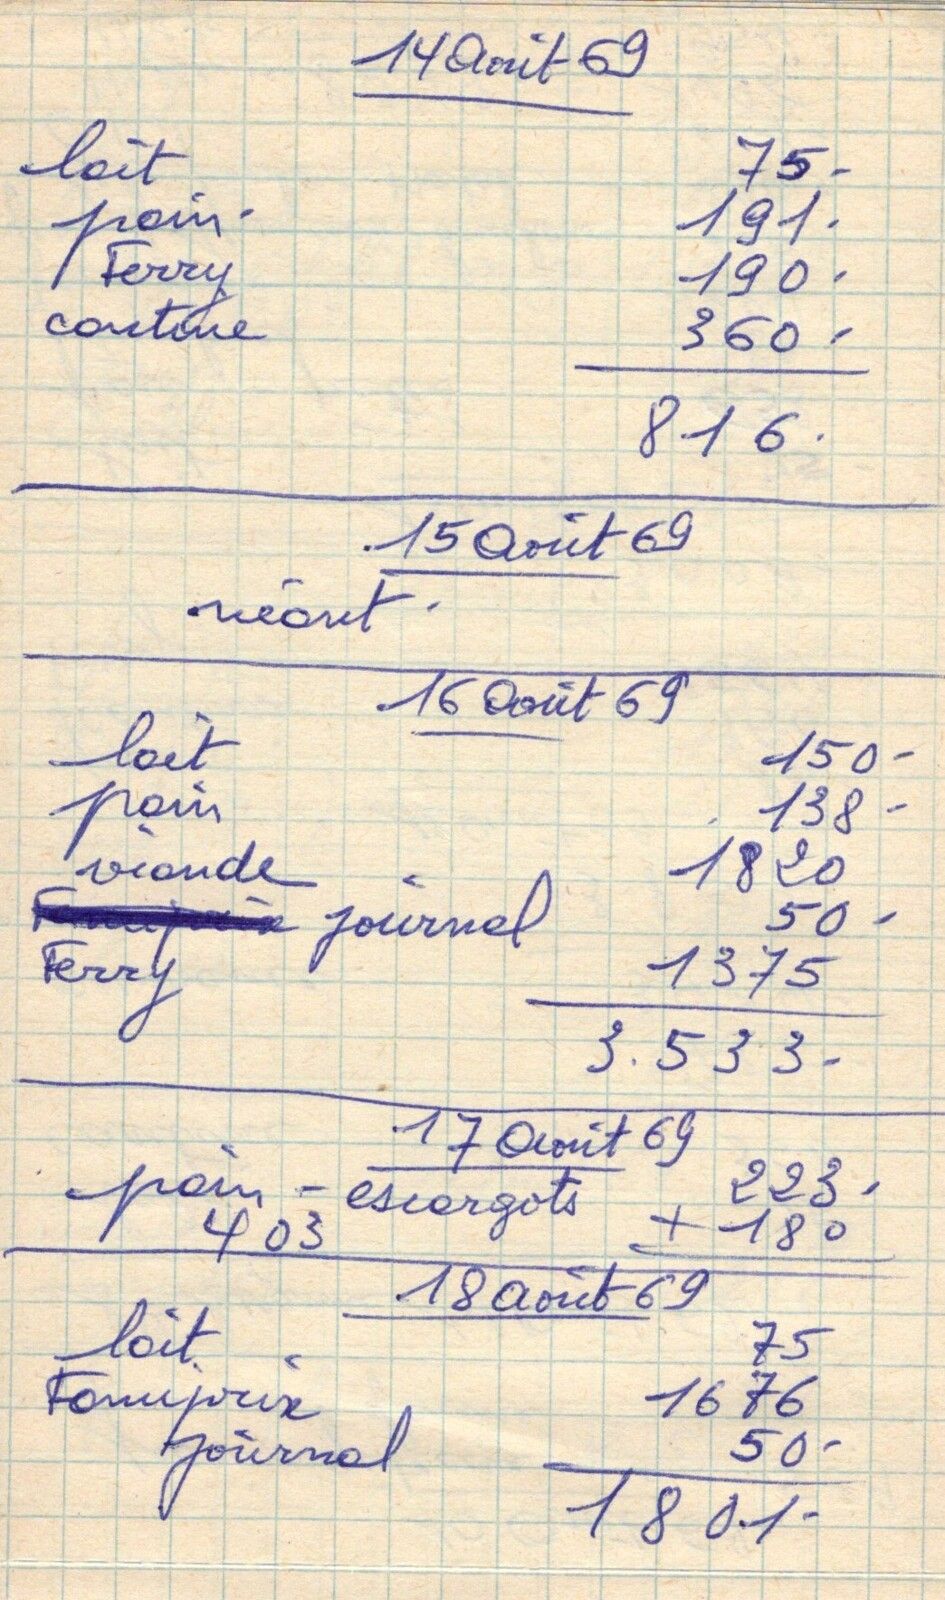 14 Août 69
lait 75.-
pain. 191.
Ferry 190.
cantine 360.-
816.
15 Août 69
néant.
16 Août 69
lait 150-
pain 138-
viande 1820
journal 50-
Ferry 1375
3.533-
17 Août 69
pain - escargots 223.
403 + 180
18 août 69
lait 75
Famiprix 1676
journal 50-
1801-